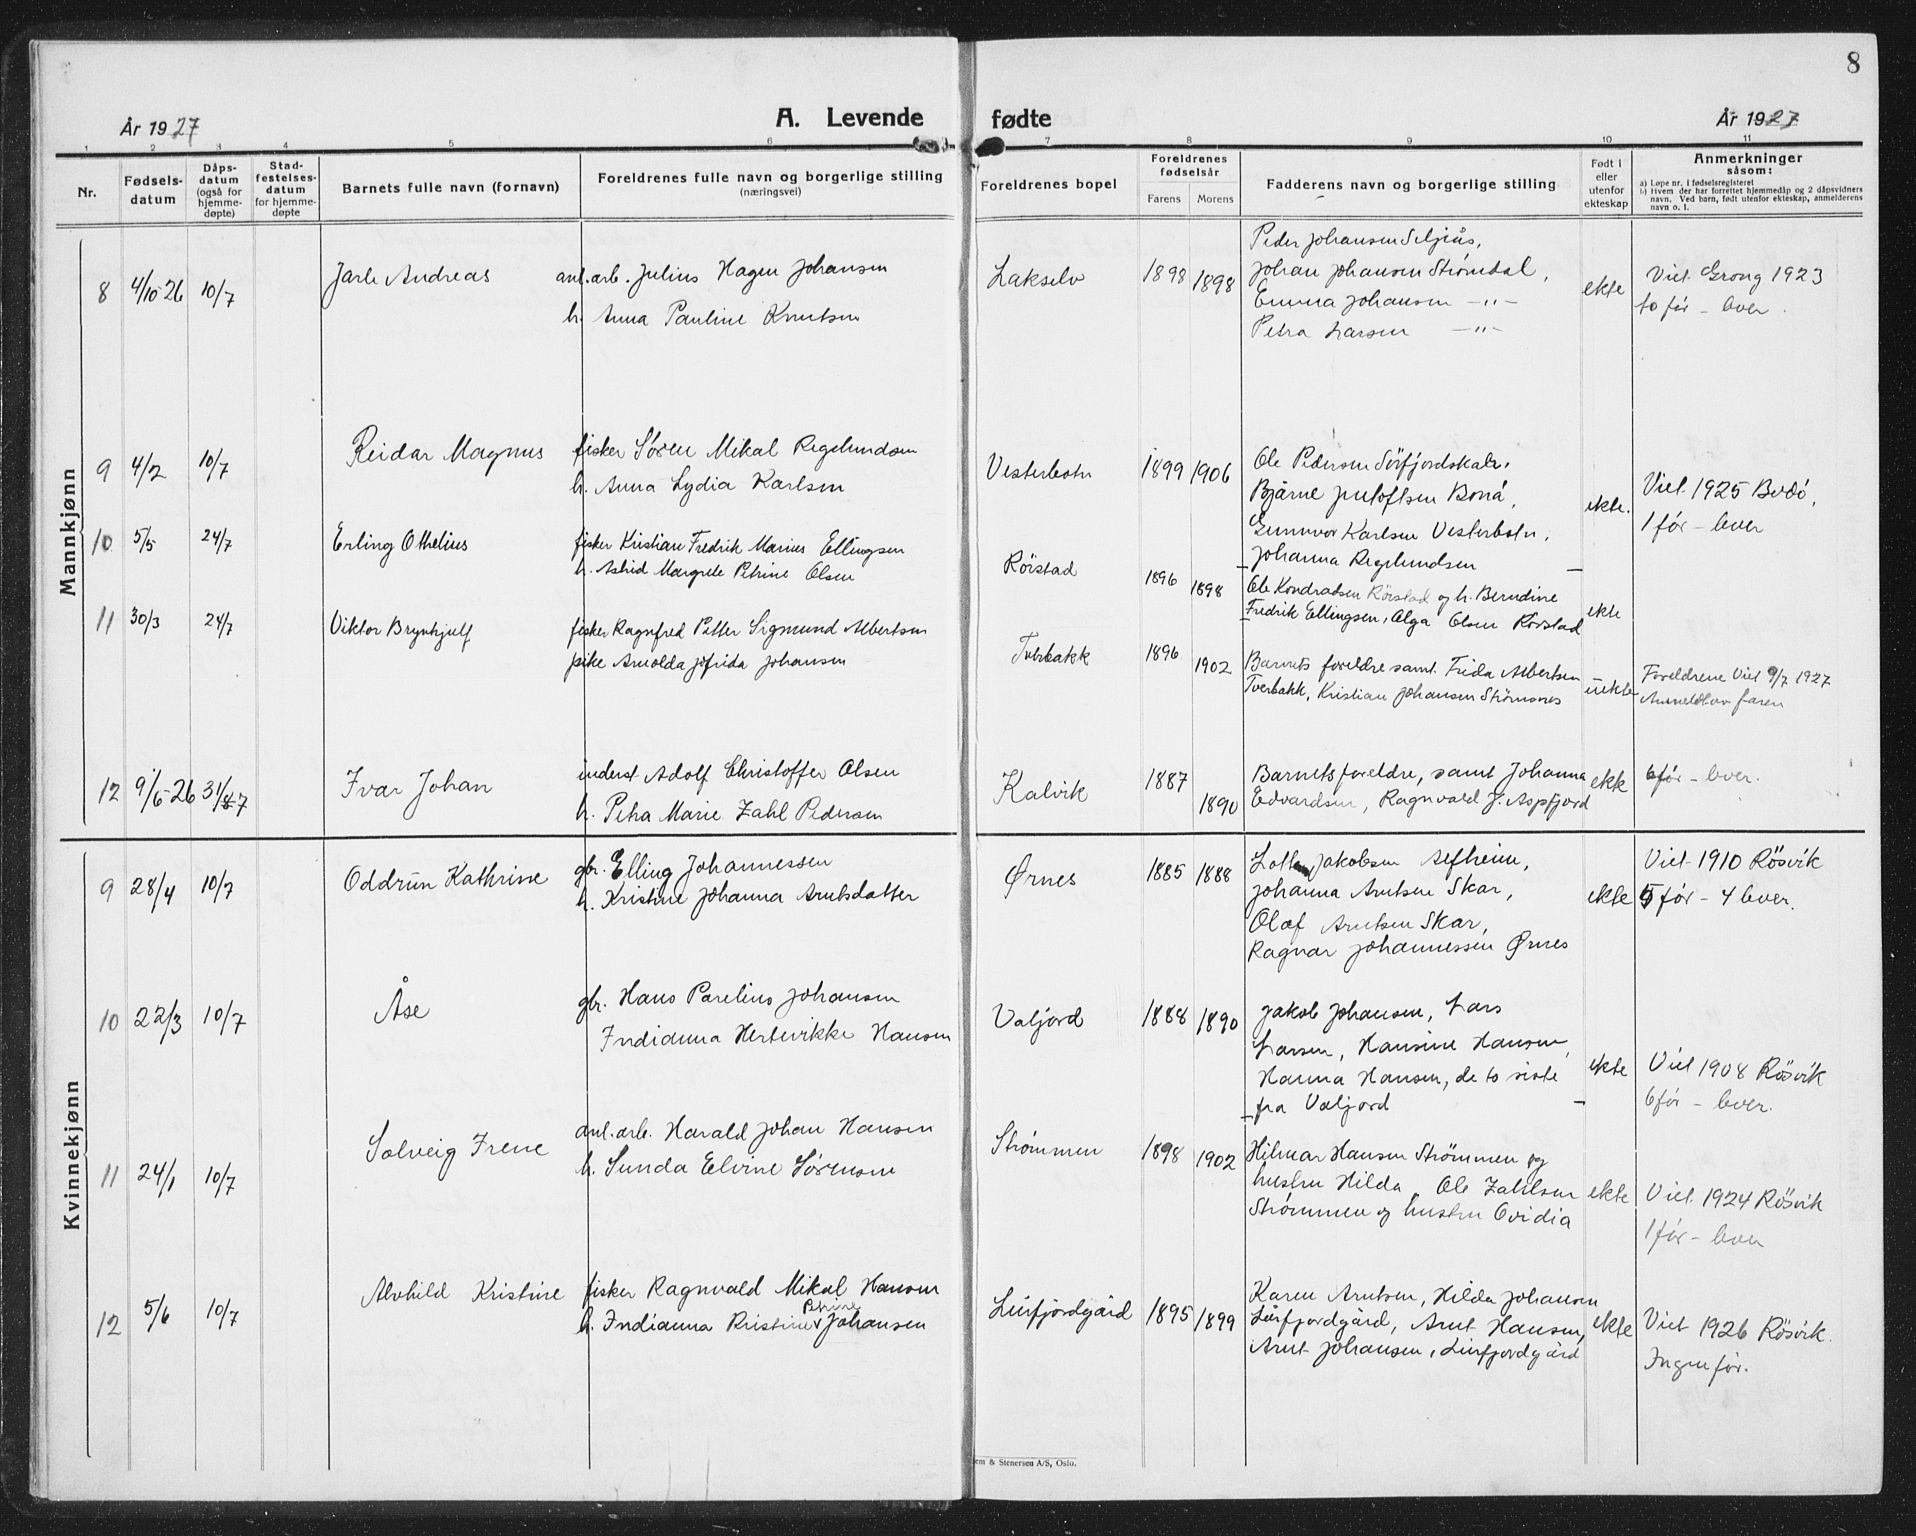 8
År 1927 A. Levende fødte År 1927
1 2 3 4 5 6 7 8 9 10 11
Nr. Fødsels-datum Dåps-datum (også for hjemme-døpte) Stad-festelses-datum for hjemme-døpte Barnets fulle navn (fornavn) Foreldrenes fulle navn og borgerlige stilling (næringsvei) Foreldrenes bopel Foreldrenes fødselsår Farens Morens Fadderens navn og borgerlige stilling Født i eller utenfor ekteskap Anmerkninger såsom:
a) Løpe nr. i fødselsregisteret
b) Hvem der har forrettet hjemmedåp og 2 dåpsvidners navn. Ved barn, født utenfor ekteskap, anmelderens navn o. l.
Mannkjønn
8 4/10-26 10/7 Jarle Andreas anl.arb. Julius Hagen Johansen Lakselv 1898 1898 Peder Johansen Seljeås,
h. Anna Pauline Knutsen Johan Johansen Strømdal,
Emma Johansen -"-
Petra Larsen -"-
ekte Viet Grong 1923
to før - lever.
9 4/2 10/7 Reidar Magnus fisker Søren Mikal Regelundsen Vesterbotn 1899 1906 Ole Pedersen Sörfjordskalv.
h. Anna Lydia Karlsen Bjårne
Gunnvor Karlsen Vesterbotn.
Johanna Regelundsen
ekte. Viet 1925 Bodö,
1 før - lever
10 5/5 24/7 Erling Othelius fisker Kristian Fredrik Marius Ellingsen Rörstad 1896 1898 Ole Kondradsen Rörstad og h. Berndine
h. Astrid Margrete Petrine Olsen Fredrik Ellingsen, Olga Olsen Rörstad
ekte
11 30/3 24/7 Viktor Brynhjulf fisker Ragnfred Petter Sigmund Albertsen Tverbakk 1896 1902 Barnets foreldre samt Frida Albertsen
pike Arnolda Jofrida Johansen Tverbakk, Kristian Johansen Strømsnes
uekte Foreldrene Viet 9/7 1927
Anmeldt av faren
12 9/6-26 31/7 Ivar Johan inderst Adolf Christoffer Olsen Kalvik 1887 1890 Barnets foreldre, samt Johanna
h. Petra Marie Zahl Pedersen Edvardsen, Ragnvald J. Aspfjord
ekte 6 før - lever.
Kvinnekjønn
9 28/4 10/7 Oddrun Kathrine gbr. Elling Johannessen Ørnes 1885 1888 Jakobsen Alfheim,
h. Kristine Johanna Arntsdatter Johanna Arntsen Skar,
Olaf Arntsen Skar,
Ragnar Johannessen Ørnes
ekte Viet 1910 Rösvik
5 før - 4 lever.
10 22/3 10/7 Åse gbr. Hans Parelius Johansen Valjord 1888 1890 Jakob Johansen, Lars
Indianna Hertevikke Hansen Larsen, Hansine Hansen,
Hanna Hansen, de to siste
fra Valjord
ekte Viet 1908 Rösvik
6 før - lever.
11 24/1 10/7 Solveig Irene anl.arb. Harald Johan Hansen Strømmen 1898 1902 Hilmar Hansen Strømmen og
h. Sunda Elvine Sørensen hustru Hilda, Ole Zahlsen
Strømmen og hustru Ovidia
ekte Viet 1924 Rösvik
1 før - lever
12 5/6 10/7 Alvhild Kristine fisker Ragnvald Mikal Hansen Leirfjordgård 1895 1899 Karen Arntsen, Hilda Johansen
h. Indianna Kristine Petrine Johansen Leirfjordgård, Arnt Hansen,
Arnt Johansen, Leirfjordgård
ekte Viet 1926 Rösvik.
Ingen før.
em & Stenersen A/S, Oslo.